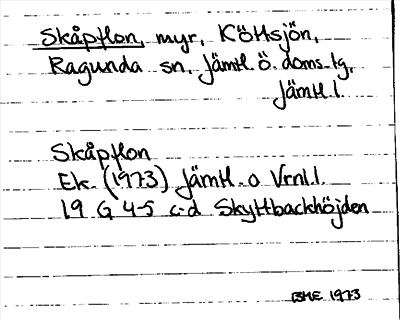 Skåpflon, myr, Köttsjön,
Ragunda sn, Jämtl. ö. doms.tg,
Jämtl.l.
Skåpflon
Ek. (1973) Jämtl. o Vrnl.l.
19 G 4-5 c-d Skyttbackhöjden
BHE 1973